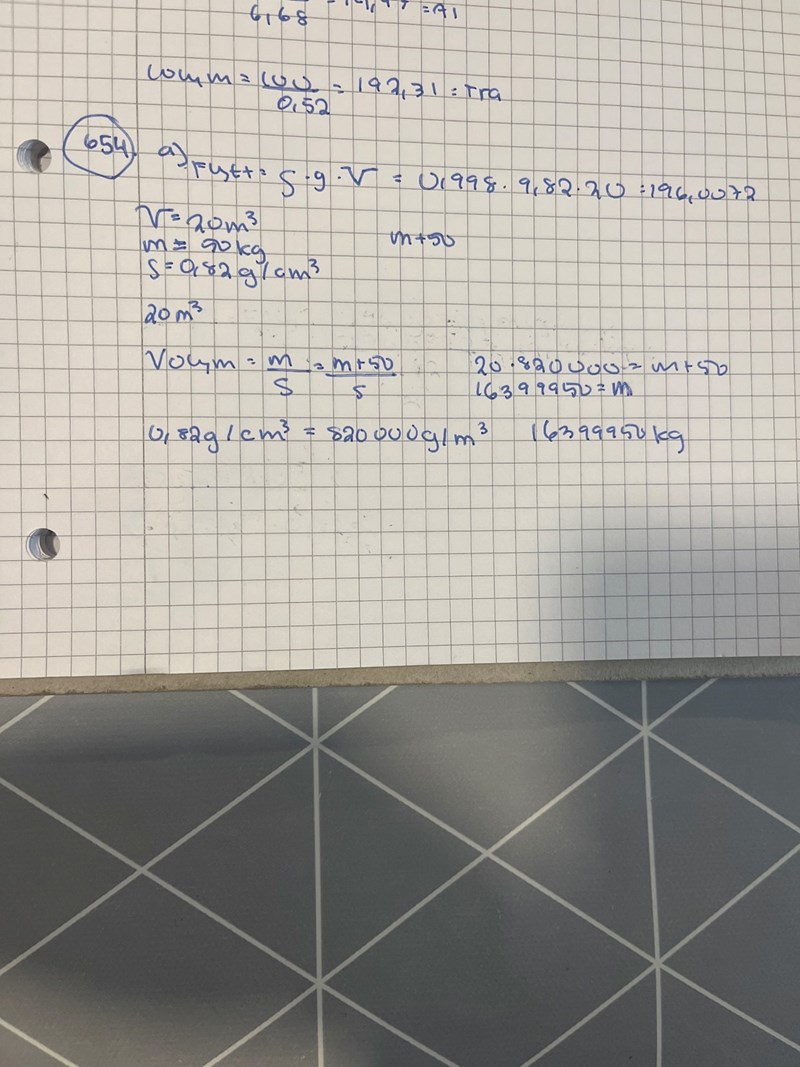 6,68 = A1
Volym = 100/0,52 = 192,31 = Trä
654 a) Flyft = ρ·g·V = 0,998·9,82·20 = 196,0072
V = 20m³
m = 90kg m+50
ρ = 0,82g/cm³
20m³
Volym = m/ρ = m+50/ρ 20·820000 = m+50
16399950 = m
0,82g/cm³ = 820000g/m³ 16399950kg